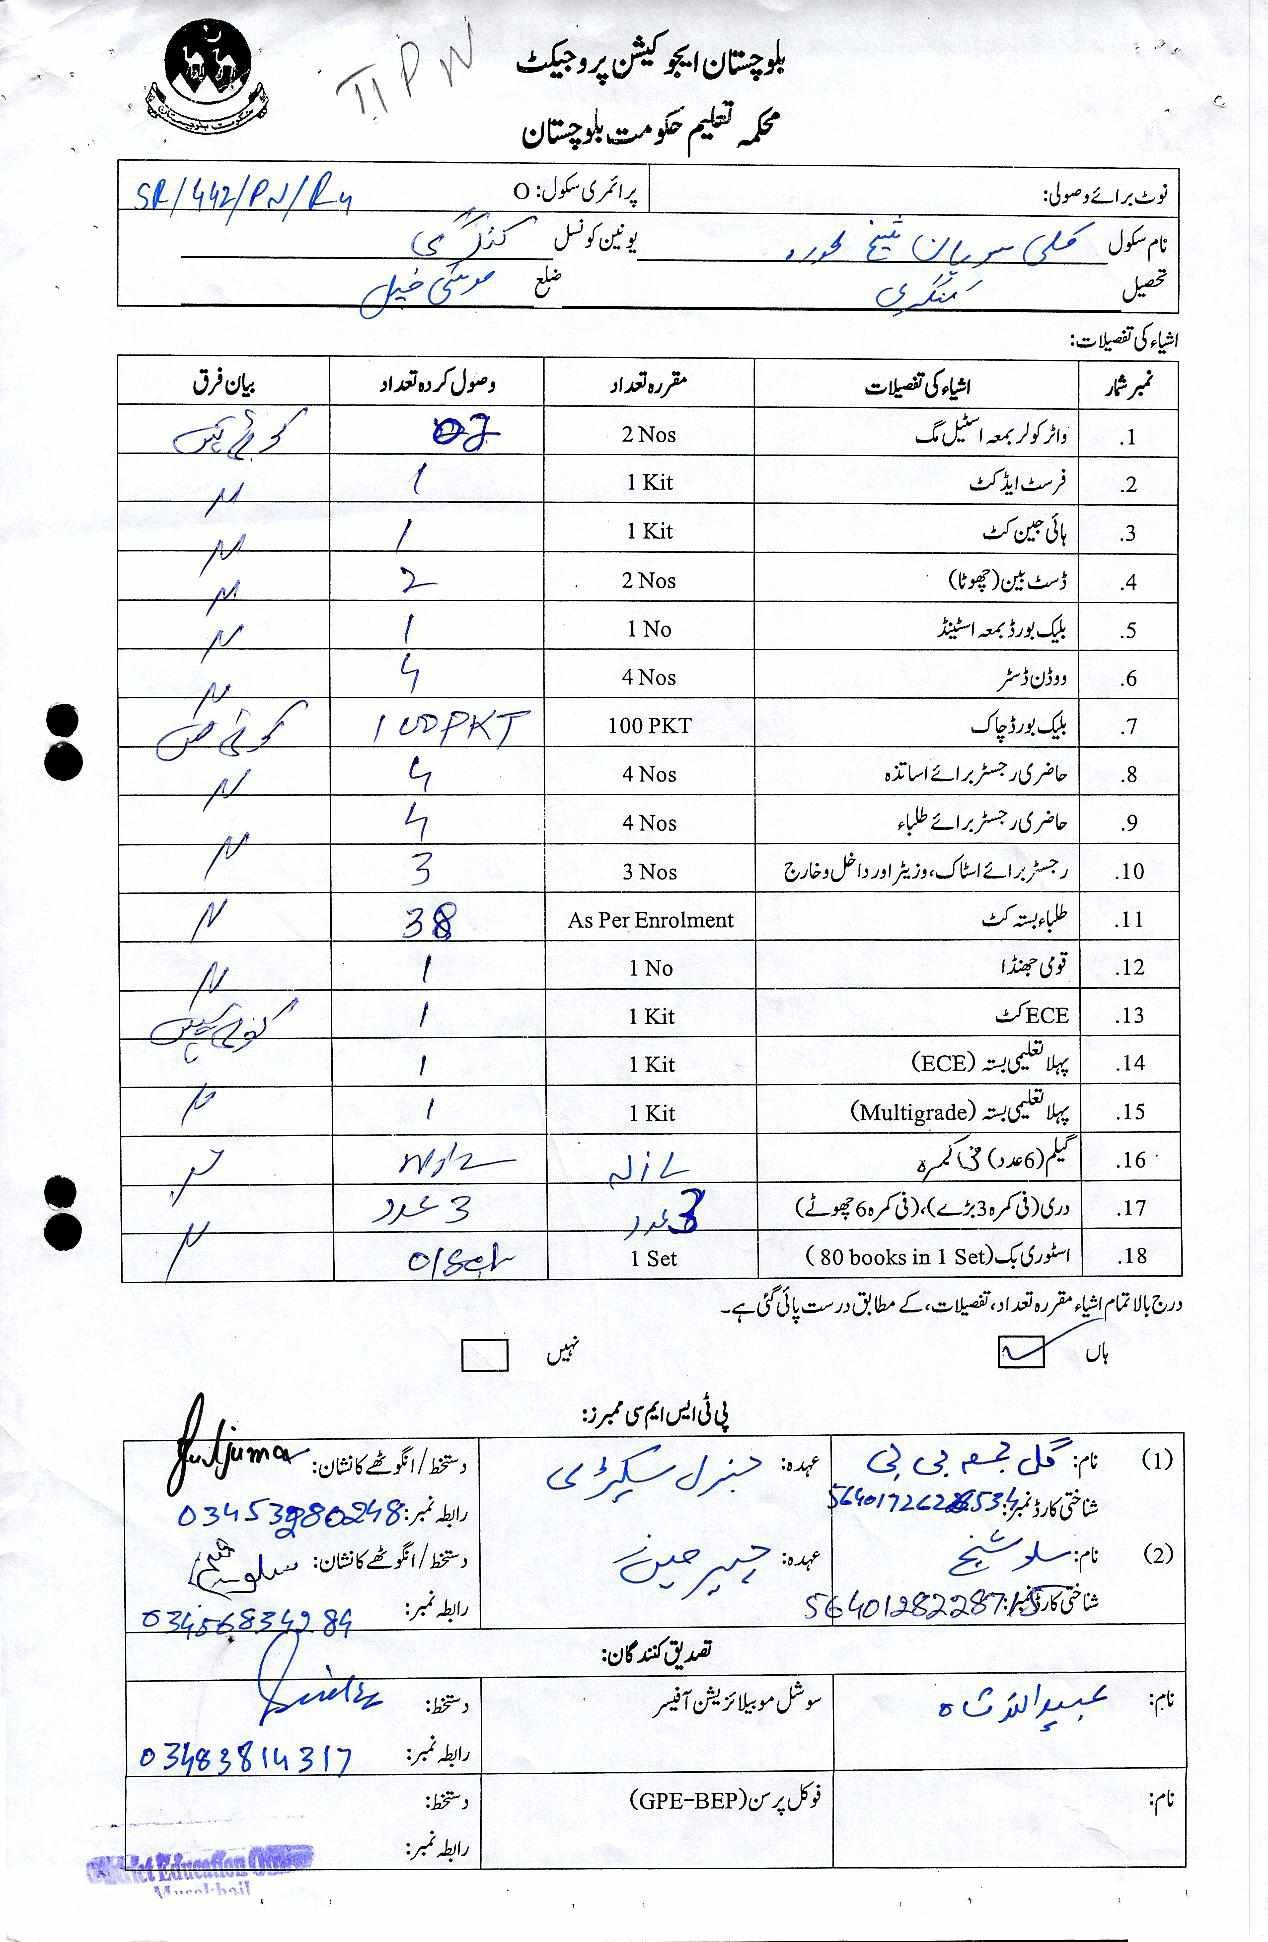 بلوچستان ایجوکیشن پروجیکٹ
IIPN
محکمہ تعلیم حکومت بلوچستان
نوٹ برائے وصولی: پرائمری سکول: O SR/442/PN/R4
نام سکول کلی سریان شیخ محورہ یونین کونسل کنگری
تحصیل کنگری ضلع موسیٰ خیل
اشیاء کی تفصیلات:
نمبر شمار اشیاء کی تفصیلات مقررہ تعداد وصول کردہ تعداد بیان فرق
1. واٹر کولر بمعہ اسٹیل مگ 2 Nos 02 کوئی نہیں
2. فرسٹ ایڈ کٹ 1 Kit 1 〃
3. ہائی جین کٹ 1 Kit 1 〃
4. ڈسٹ بین (چھوٹا) 2 Nos 2 〃
5. بلیک بورڈ بمعہ اسٹینڈ 1 No 1 〃
6. ووڈن ڈسٹر 4 Nos 4 〃
7. بلیک بورڈ چاک 100 PKT 100 PKT کوئی نہیں
8. حاضری رجسٹر برائے اساتذہ 4 Nos 4 〃
9. حاضری رجسٹر برائے طلباء 4 Nos 4 〃
10. رجسٹر برائے اسٹاک، وزیٹر اور داخل و خارج 3 Nos 3 〃
11. طلباء بستہ کٹ As Per Enrolment 38 〃
12. قومی جھنڈا 1 No 1 〃
13. ECE کٹ 1 Kit 1 کوئی نہیں
14. پہلا تعلیمی بستہ (ECE) 1 Kit 1
15. پہلا تعلیمی بستہ (Multigrade) 1 Kit 1 〃
16. گیلم (6 عدد) فی کمرہ
17. دری (فی کمرہ 3 بڑے)، (فی کمرہ 6 چھوٹے) 3 عدد 3 عدد 〃
18. اسٹوری بک (80 books in 1 Set) 1 Set 01 Set 〃
درج بالا تمام اشیاء مقررہ تعداد، تفصیلات، کے مطابق درست پائی گئی ہے۔
ہاں ✓ نہیں
پی ٹی ایس ایم سی ممبرز:
(1) نام: گل جمعہ بی بی عہدہ: جنرل سیکرٹری دستخط/انگوٹھے کا نشان: Guljuma
شناختی کارڈ نمبر: رابطہ نمبر: 03453280248
(2) نام: سلو شیخ عہدہ: چیئرمین دستخط/انگوٹھے کا نشان: سلو شیخ
شناختی کارڈ نمبر: رابطہ نمبر: 03456834284
تصدیق کنندگان:
نام: عبیداللہ شاہ سوشل موبیلائزیشن آفیسر دستخط:
رابطہ نمبر: 03483814317
نام: فوکل پرسن (GPE-BEP) دستخط:
رابطہ نمبر:
District Education Officer
Musakhail